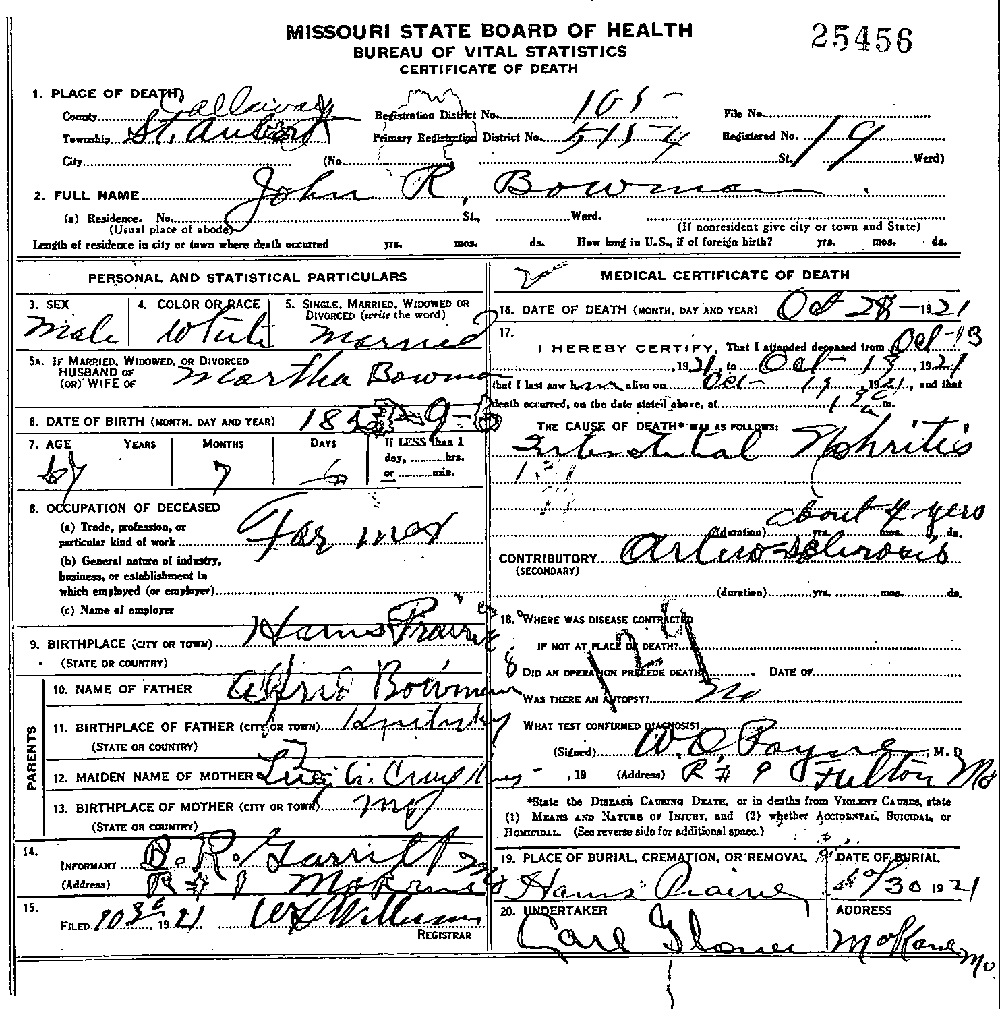 MISSOURI STATE BOARD OF HEALTH
BUREAU OF VITAL STATISTICS
CERTIFICATE OF DEATH
25456
1. PLACE OF DEATH
County Callaway Registration District No. 105 File No.
Township St. Primary Registration District No. 5154 Registered No. 19
City (No. St. Ward)
2. FULL NAME John R. Bowman
(a) Residence. No. St., Ward.
(Usual place of abode) (If nonresident give city or town and State)
Length of residence in city or town where death occurred yrs. mos. ds. How long in U.S., if of foreign birth? yrs. mos. ds.
PERSONAL AND STATISTICAL PARTICULARS
3. SEX 4. COLOR OR RACE 5. SINGLE, MARRIED, WIDOWED OR
DIVORCED (write the word)
Male White Married
5A. IF MARRIED, WIDOWED, OR DIVORCED
HUSBAND OF
(OR) WIFE OF Martha Bowman
6. DATE OF BIRTH (MONTH, DAY AND YEAR)
7. AGE YEARS MONTHS DAYS If LESS than 1
day, hrs.
or min.
7 6
8. OCCUPATION OF DECEASED
(a) Trade, profession, or
particular kind of work Farmer
(b) General nature of industry,
business, or establishment in
which employed (or employer)
(c) Name of employer
9. BIRTHPLACE (CITY OR TOWN) Hams Prairie
(STATE OR COUNTRY)
PARENTS
10. NAME OF FATHER Bowman
11. BIRTHPLACE OF FATHER (CITY OR TOWN)
(STATE OR COUNTRY)
12. MAIDEN NAME OF MOTHER
13. BIRTHPLACE OF MOTHER (CITY OR TOWN) Mo
(STATE OR COUNTRY)
14.
INFORMANT B. R. Garrett
(Address) Mokane Mo
15.
FILED 1921
REGISTRAR
MEDICAL CERTIFICATE OF DEATH
16. DATE OF DEATH (MONTH, DAY AND YEAR) Oct 28 - 1921
17.
I HEREBY CERTIFY, That I attended deceased from Oct-13
, 1921, to Oct- 19, 1921
that I last saw him alive on Oct- 19, 1921, and that
death occurred, on the date stated above, at m.
THE CAUSE OF DEATH* WAS AS FOLLOWS:
Interstitial Nephritis
about 4 yers
(duration) yrs. mos. ds.
CONTRIBUTORY
(SECONDARY)
(duration) yrs. mos. ds.
18. WHERE WAS DISEASE CONTRACTED
IF NOT AT PLACE OF DEATH?
129
DID AN OPERATION PRECEDE DEATH? DATE OF
WAS THERE AN AUTOPSY? no
WHAT TEST CONFIRMED DIAGNOSIS?
(Signed) Payne, M. D.
, 19 (Address) R # 9 Fulton Mo
*State the DISEASE CAUSING DEATH, or in deaths from VIOLENT CAUSES, state
(1) MEANS AND NATURE OF INJURY, and (2) whether ACCIDENTAL, SUICIDAL, or
HOMICIDAL. (See reverse side for additional space.)
19. PLACE OF BURIAL, CREMATION, OR REMOVAL DATE OF BURIAL
Hams Prairie 30 1921
20. UNDERTAKER ADDRESS
Carl Mokane Mo